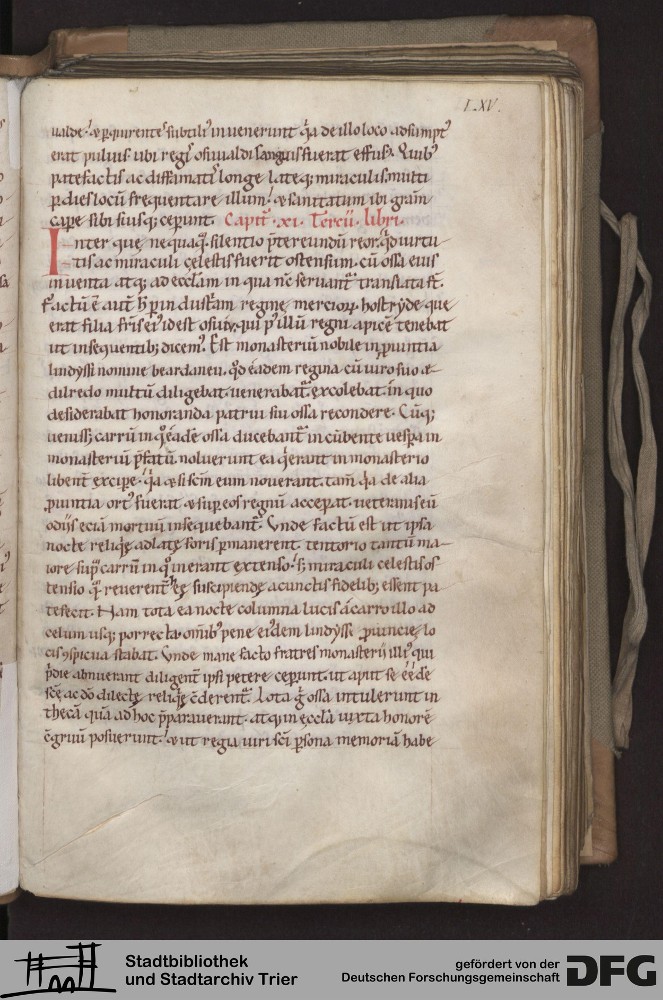 LXV.
ualde! & pquirentes subtilius inuenerunt qa de illo loco adsumpt᾽
erat puluis ubi regis osuualdi sanguis fuerat effus᾽. Quib᾽
patefactis ac diffamatis longe lateq; miraculis multi
p dies locū frequentare illum! & sanitatum ibi gratiā
capere sibi suisq; ceperunt. Capitł .xi. Tercii libri.
Inter que nequaq̃ silentio p̃tereundū reor. qd̃ uirtu
tis ac miraculi celestis fuerit ostensum. cū ossa eius
inuenta atq; ad ecclam in qua nc̄ seruant᾽ translata st̄.
Factū ē aut̄ h̄ p industriam regine mercioꝝ hostryde que
erat filia frīs ei᾽ id est osuiu. qui p᾽ illū regni apicē tenebat
ut in sequentib; dicem᾽. Est monasteriū nobile in puintia
lindyssi nomine beardaneu. qd̃ eadem regina cū uiro suo æ
dilredo multū diligebat. uenerabat᾽. excolebat. in quo
desiderabat honoranda patrui sui ossa recondere. Cūq;
uenisset carrū in q̊ eadē ossa ducebant᾽ incūbente uespa in
monasteriū p̃fatū. noluerunt ea q̇ erant in monasterio
libent᾽ excipe. qa & si scm̄ eum nouerant. tam̄ qa de alia
puintia ort᾽ fuerat & sup eos regnū acceperat. ueteranis eū
odiis eciā mortuū insequebant᾽. Unde factū est ut ipsa
nocte reliqe adlatę foris pmanerent. tentorio tantū ma
iore supra carrū in q̊ inerant extenso! s; miraculi celestis os
tensio q̃ reuerent᾽ eę suscipiendę a cunctis fidelib; essent pa
tefecit. Nam tota ea nocte columna lucis a carro illo ad
celum usq; porrecta. omib᾽ pene ei᾽dem lindysse puincię lo
cis cspicua stabat. Unde mane facto fratres monasterii illi᾽ qui
p̃die abnuerant diligent᾽ ipsi petere ceperunt. ut aput se eęde
scē ac dō dilectę reliqę cderent᾽. Lota g̊ ossa intulerunt in
thecā quā ad hoc p̃parauerunt. atq; in ecclā iuxta honorē
cgruū posuerunt! & ut regia uiri scī psona memoriā habe
Stadtbibliothek
und Stadtarchiv Trier
gefördert von der
Deutschen Forschungsgemeinschaft
DFG